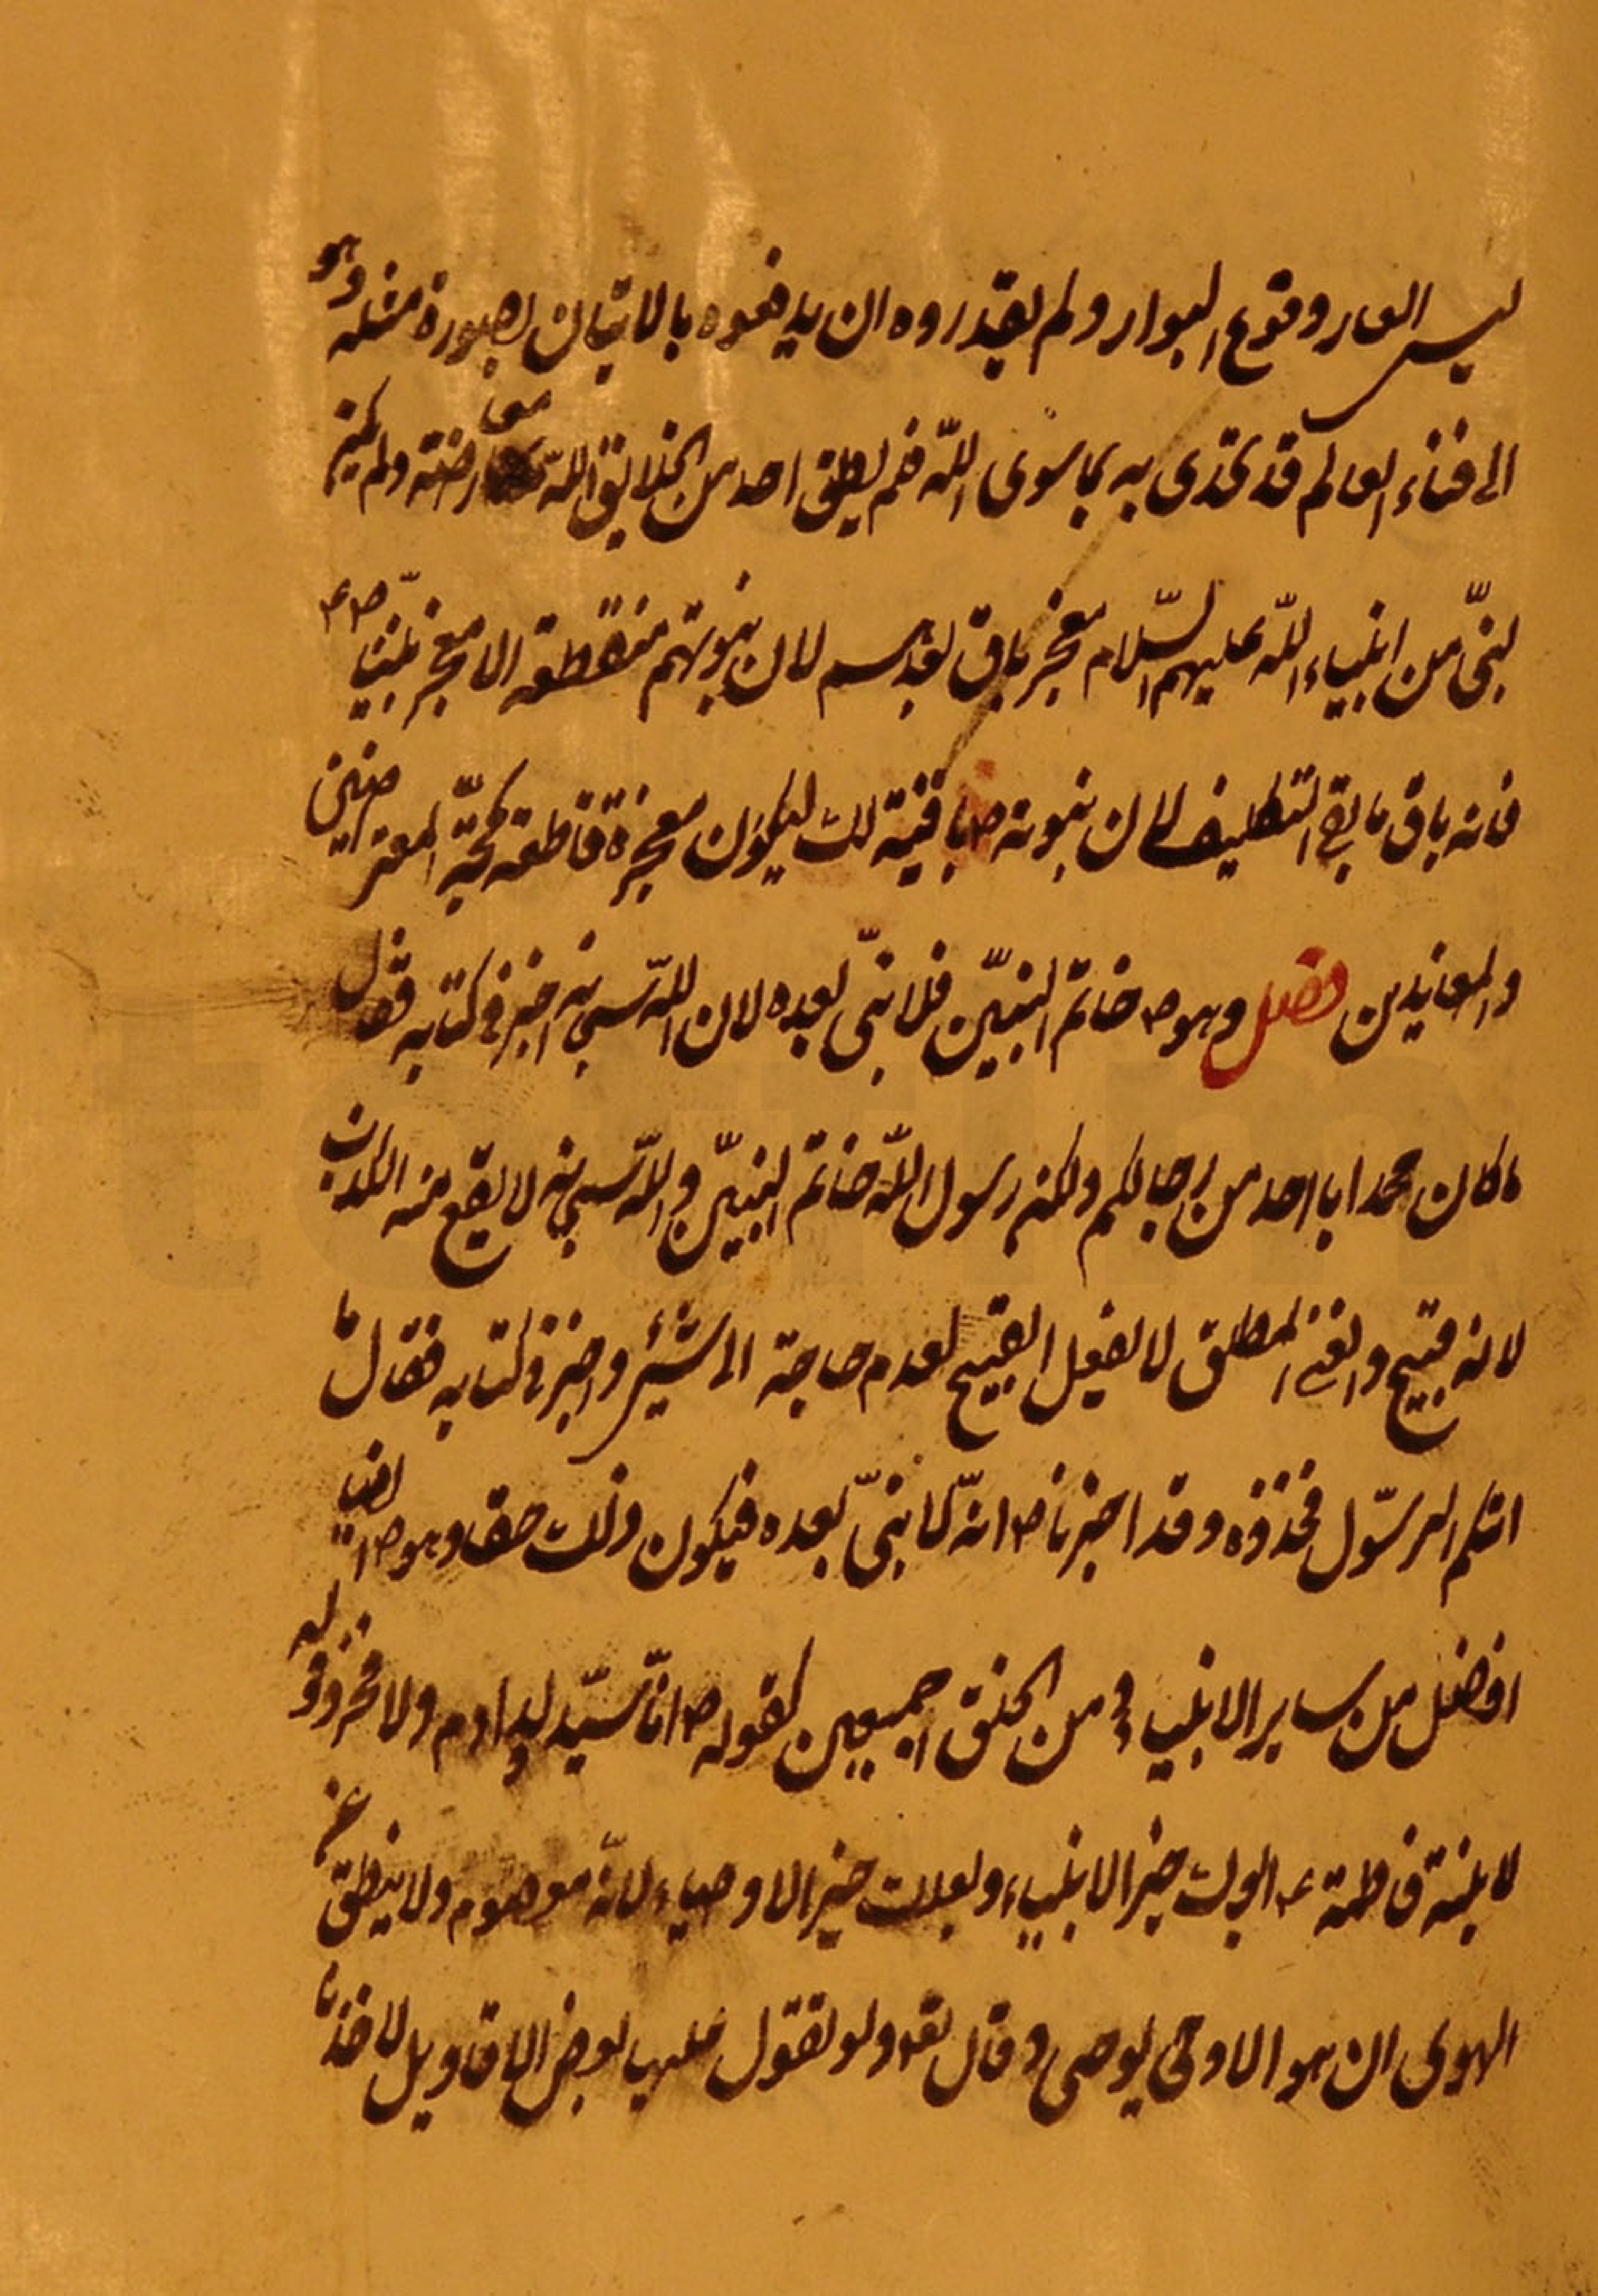 ليس العار وقوع البوار ولم يقدروه ان يدفعوه بالاتيان بصورة مثله وهو
الى فناء العالم قد تحدى به ما سوى الله فلم يطق احد من الخلايق الله معارضته ولم يكن
لنبّى من انبياء الله عليهم السّلام معجز باق بعدهم لان نبوتهم منقطعة الا معجز نبيّنا ص ع
فانه باق ما بقى التكليف لان نبوته ص باقية لك ليكون معجزة قاطعة لحجّة المعترضين
والمعاندين فصل وهو ص خاتم النبيّين فلا نبّى بعده لان اللّه سبحانه اخبر فى كتابه فقال
ما كان محمد ابا احد من رجالكم ولكن رسول اللّه خاتم النبيّين واللّه سبحانه لا يقع منه الكذب
لانه قبيح والغنى المطلق لا يفعل القبيح لعدم حاجة الى شيئ واخبر فى كتابه فقال ما
اتيكم الرسّول فخذوه وقد اخبرنا ص انه لا نبّى بعده فيكون ذلك حقا وهو ص ايضا
افضل من ساير الانبياء و من الخلق اجمعين كقوله ص انا سيّد ولد ادم ولا فخر وقوله
لابنته فاطمة ع ابوك خير الانبياء وبعلك خير الاوصياء لانه معصوم ولا ينطق عن
الهوى ان هو الا وحى يوحى وقال تع ولو تقول علينا بعض الاقاويل لاخذنا